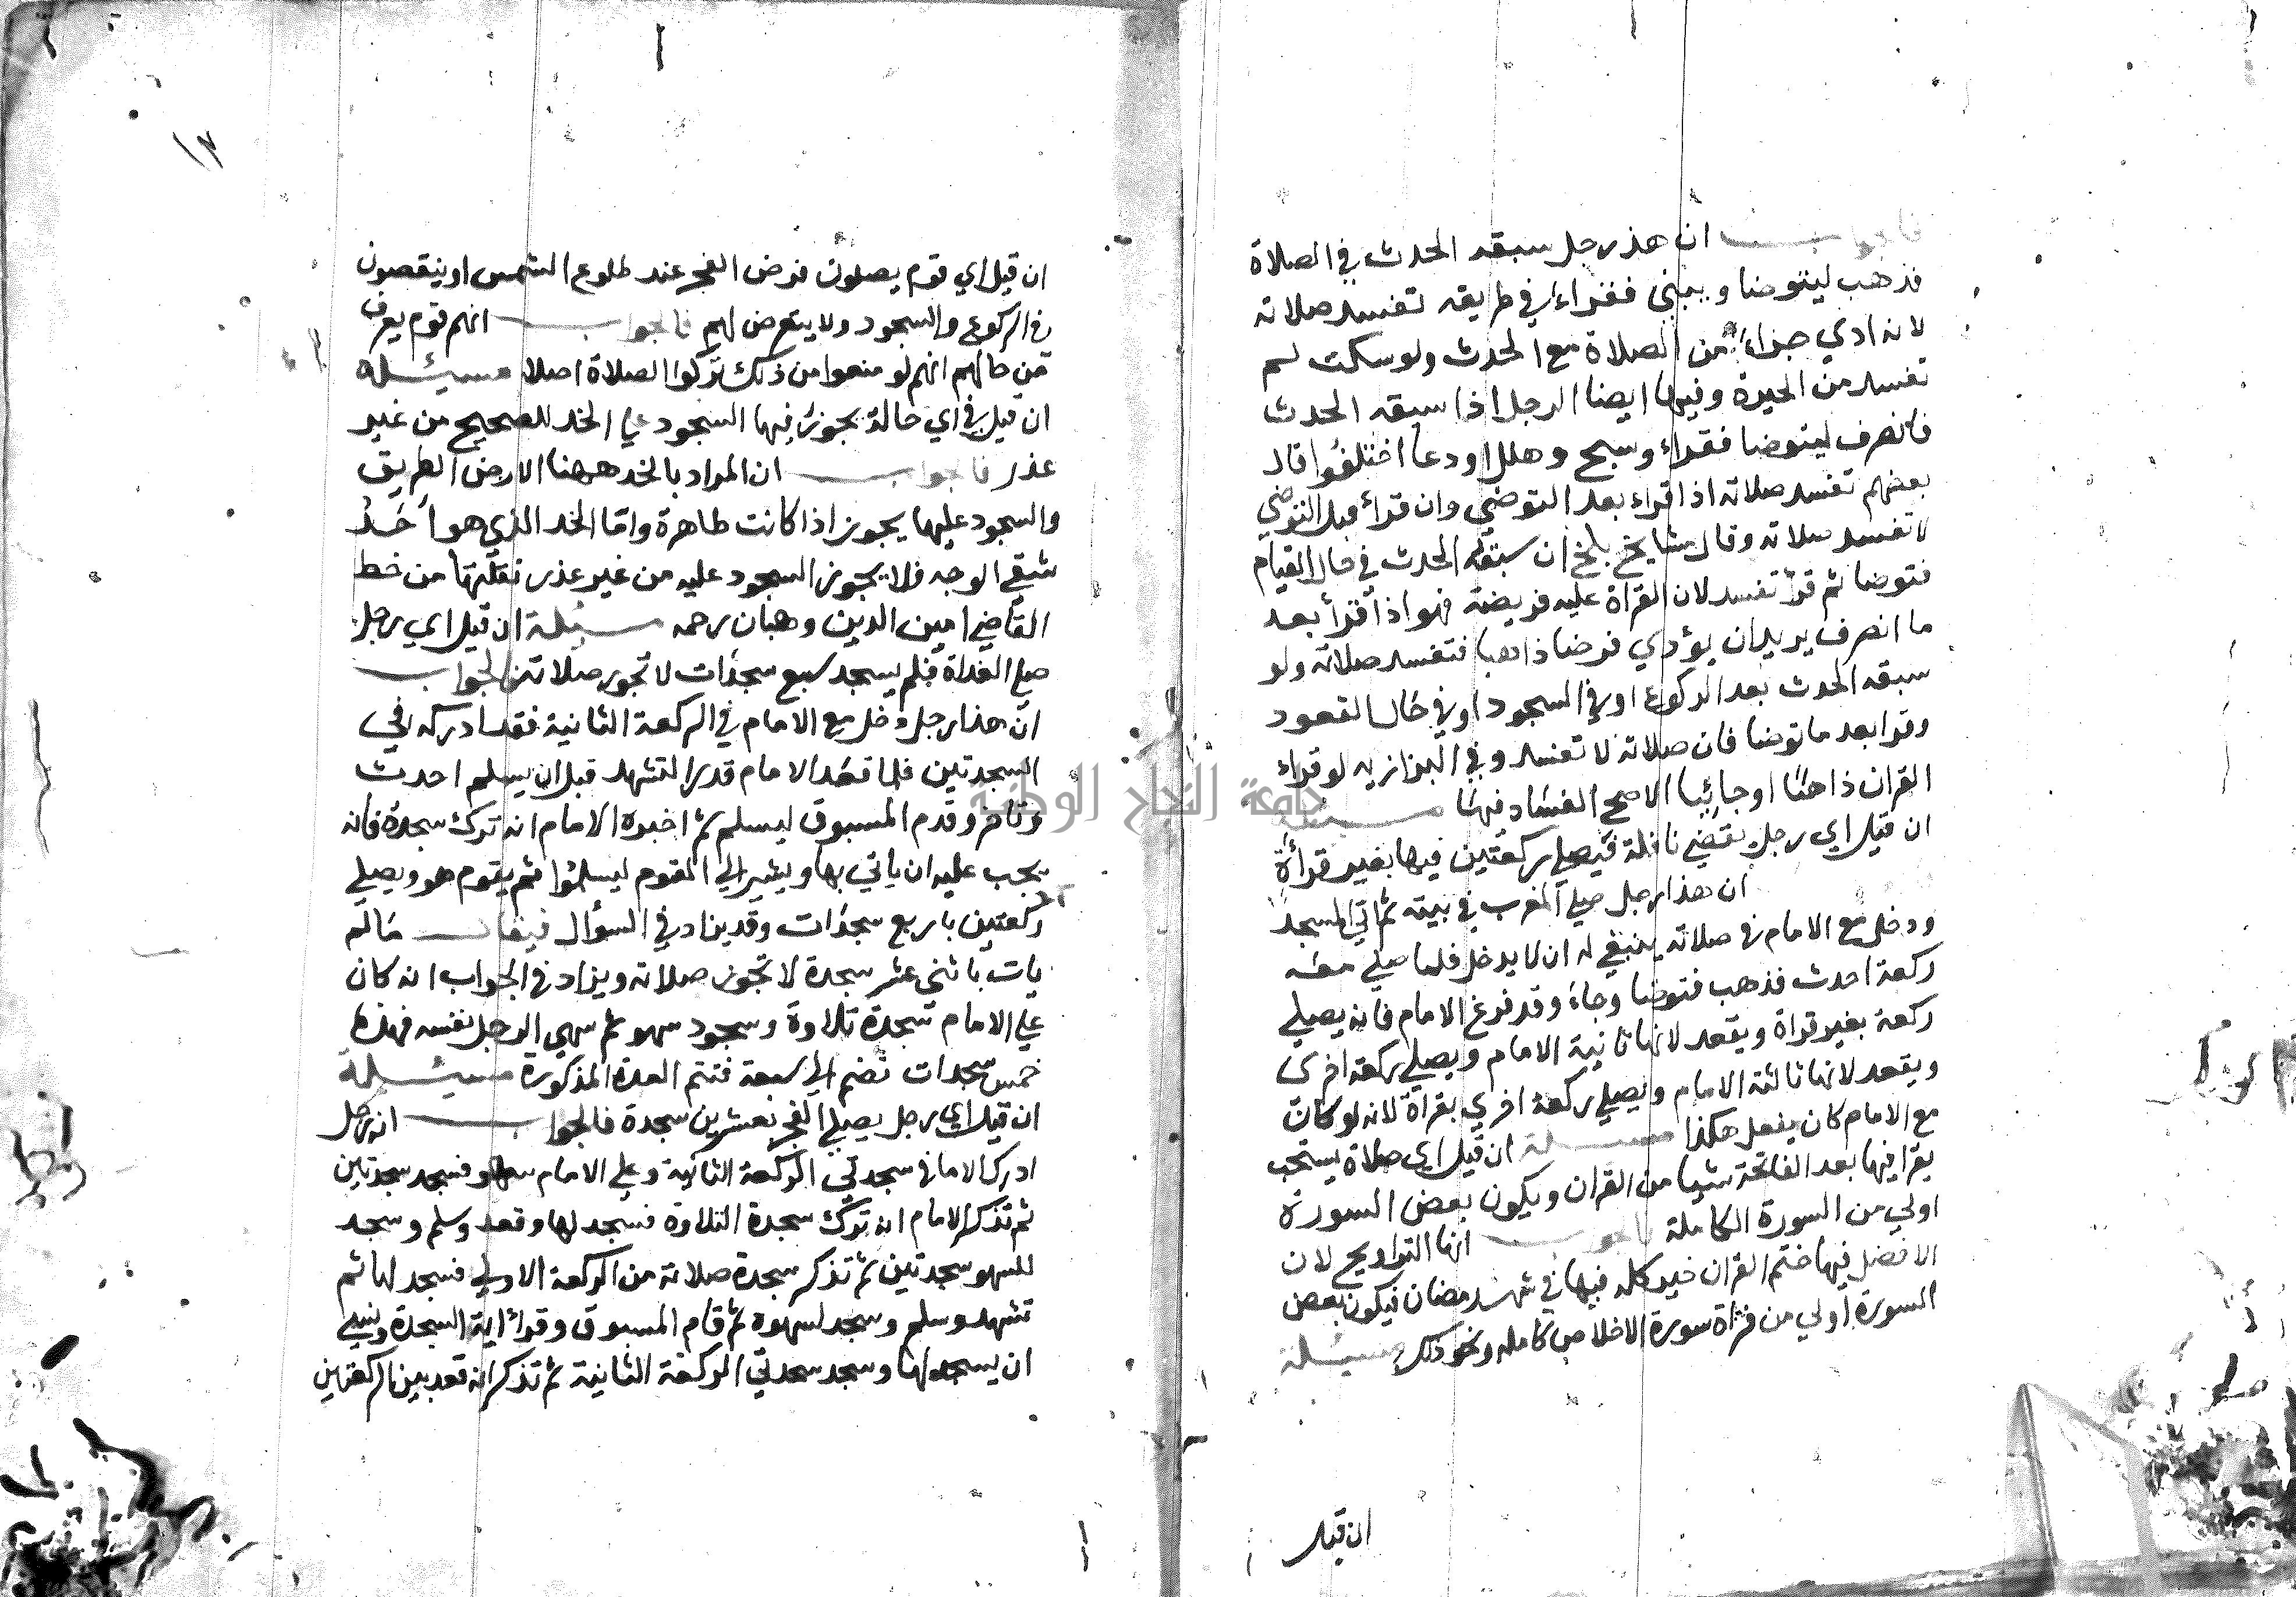 فالجواب ان هذر رجل سبقه الحدث في الصلاة
فذهب ليتوضا ويبني فقراء في طريقه تفسد صلاته
لانه ادي جزاء من الصلاة مع الحدث ولو سكت لم
تفسد من الحيرة وفيها ايضا الرجل اذا سبقه الحدث
فانصرف ليتوضا فقراء وسبح وهلل او دعا اختلفوا قال
بعضهم تفسد صلاته اذا قراء بعد التوضي وان قرأ قبل التوضي
لا تفسد صلاته وقال مشايخ بلخ ان سبقه الحدث في حال القيام
فتوضا ثم قرأ تفسد لان القراة عليه فريضة فهو اذا قرأ بعد
ما انصرف يريد ان يؤدي فرضا ذاهبا فتفسد صلاته ولو
سبقه الحدث بعد الركوع او في السجود او في حال القعود
وقرا بعد ما توضا فان صلاته لا تفسد وفي البزازيه لو قراء
القران ذاهبًا او جائيا الاصح الفساد فيهما مسئلة
ان قيل اي رجل يقضي نافلة فيصلي ركعتين فيها بغير قرأة
ان هذا رجل صلي المغرب في بيته ثم اتي المسجد
ودخل مع الامام في صلاته ينبغي له ان لا يدخل فلما صلي معه
ركعة احدث فذهب فتوضا وجاء وقد فرغ الامام فانه يصلي
ركعة بغير قراة ويقعد لانها ثانية الامام ويصلي ركعة اخري
ويقعد لانها ثالثة الامام ويصلي ركعة اخري بقراة لانه لو كان
مع الامام كان يفعل هكذا مسئلة ان قيل اي صلاة يستحب
يقرا فيها بعد الفاتحة شيا من القران ويكون بعض السورة
اولي من السورة الكاملة فالجواب انها التراويح لان
الافضل فيها ختم القران خير كله فيها في شهر رمضان فيكون بعض
السورة اولي من قراة سورة الاخلاص كامله ونحو ذلك مسئلة
ان قيل
١٣
ان قيل اي قوم يصلون فرض الفجر عند طلوع الشمس او ينقصون
في الركوع والسجود ولا يتعرض لهم فالجواب انهم قوم يعرف
من حالهم انهم لو منعوا من ذلك تركوا الصلاة اصلا مسئلة
ان قيل في اي حالة يجوز فيها السجود علي الخد للصحيح من غير
عذر فالجواب ان المراد بالخد ههنا الارض الطريق
والسجود عليها يجوز اذا كانت طاهرة واما الخد الذي هو أحد
شقي الوجه فلا يجوز السجود عليه من غير عذر نقلتها من خط
القاضي امين الدين وهبان رحمه مسئلة ان قيل اي رجل
صلي الغداة فلم يسجد سبع سجدات لا تجوز صلاته فالجواب
ان هذا رجل دخل مع الامام في الركعة الثانية فقد ادركه في
السجدتين فلما قعد الامام قدر التشهد قبل ان يسلم احدث
وتاخر وقدم المسبوق ليسلم ثم اخبره الامام انه ترك سجدة فانه
يجب عليه ان ياتي بها ويشير الي القوم ليسلموا ثم يقوم هو ويصلي
ركعتين باربع سجدات وقد يزاد في السؤال فيقال مالم
يات باثني عشر سجدة لا تجوز صلاته ويزاد في الجواب انه كان
علي الامام سجدة تلاوة وسجود سهو ثم سهي الرجل نفسه فهذه
خمس سجدات تضم الي سبعة فتتم العدة المذكورة مسئلة
ان قيل اي رجل يصلي الفجر بعشرين سجدة فالجواب انه رجل
ادرك الامام في سجدتي الركعة الثانية وعلي الامام سهو فسجد سجدتين
ثم تذكر الامام انه ترك سجدة التلاوة فسجد لها وقعد وسلم وسجد
للسهو سجدتين ثم تذكر سجدة صلاته من الركعة الاولي فسجد لها ثم
تشهد وسلم وسجد لسهوه ثم قام المسبوق وقرأ اية السجدة ونسي
ان يسجد لها وسجد سجدتي الركعة الثانية ثم تذكر انه قعد بين الركعتين
جامعة النجاح الوطنية